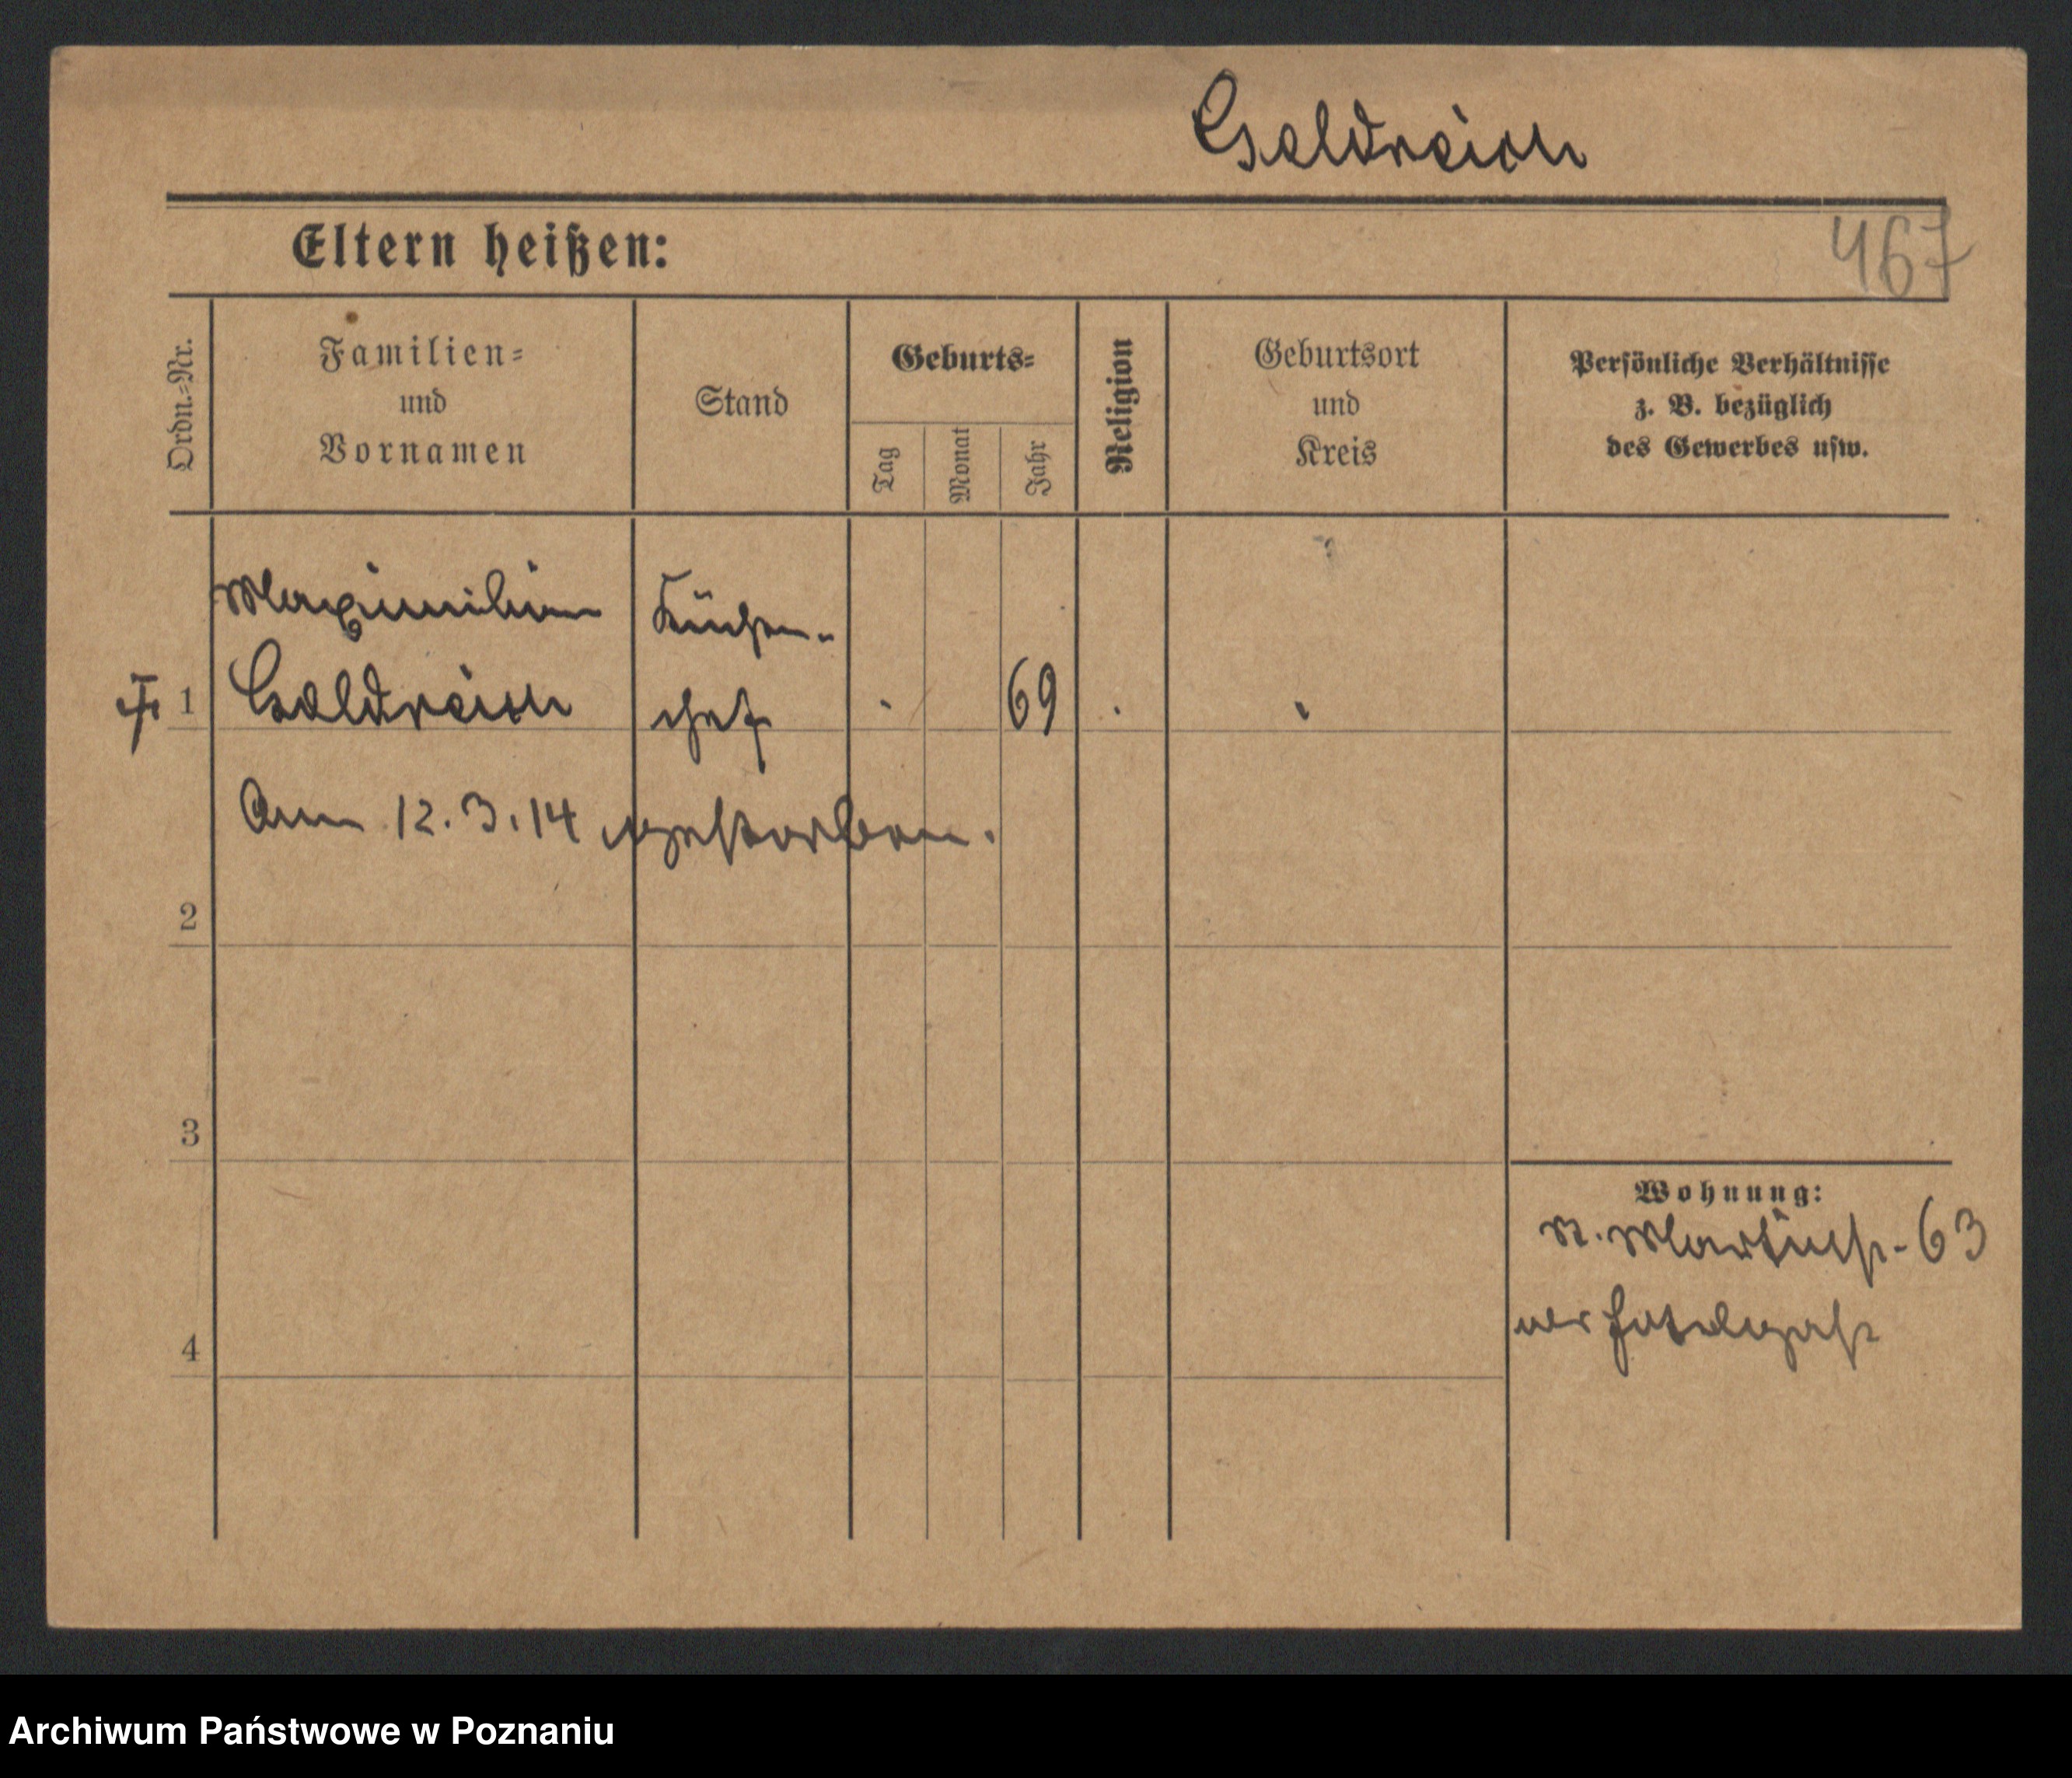 Goldreich
Eltern heißen:
467
Ordn.-Nr.
Familien-
und
Vornamen
Stand
Geburts-
Tag
Monat
Jahr
Religion
Geburtsort
und
Kreis
Persönliche Verhältnisse
z. B. bezüglich
des Gewerbes usw.
Maximilian
Küchen-
1
Goldreich
chef
69
Am 12.3.14 gestorben.
2
3
Wohnung:
St. Martinstr. 63
4
als Hotelgast
Archiwum Państwowe w Poznaniu